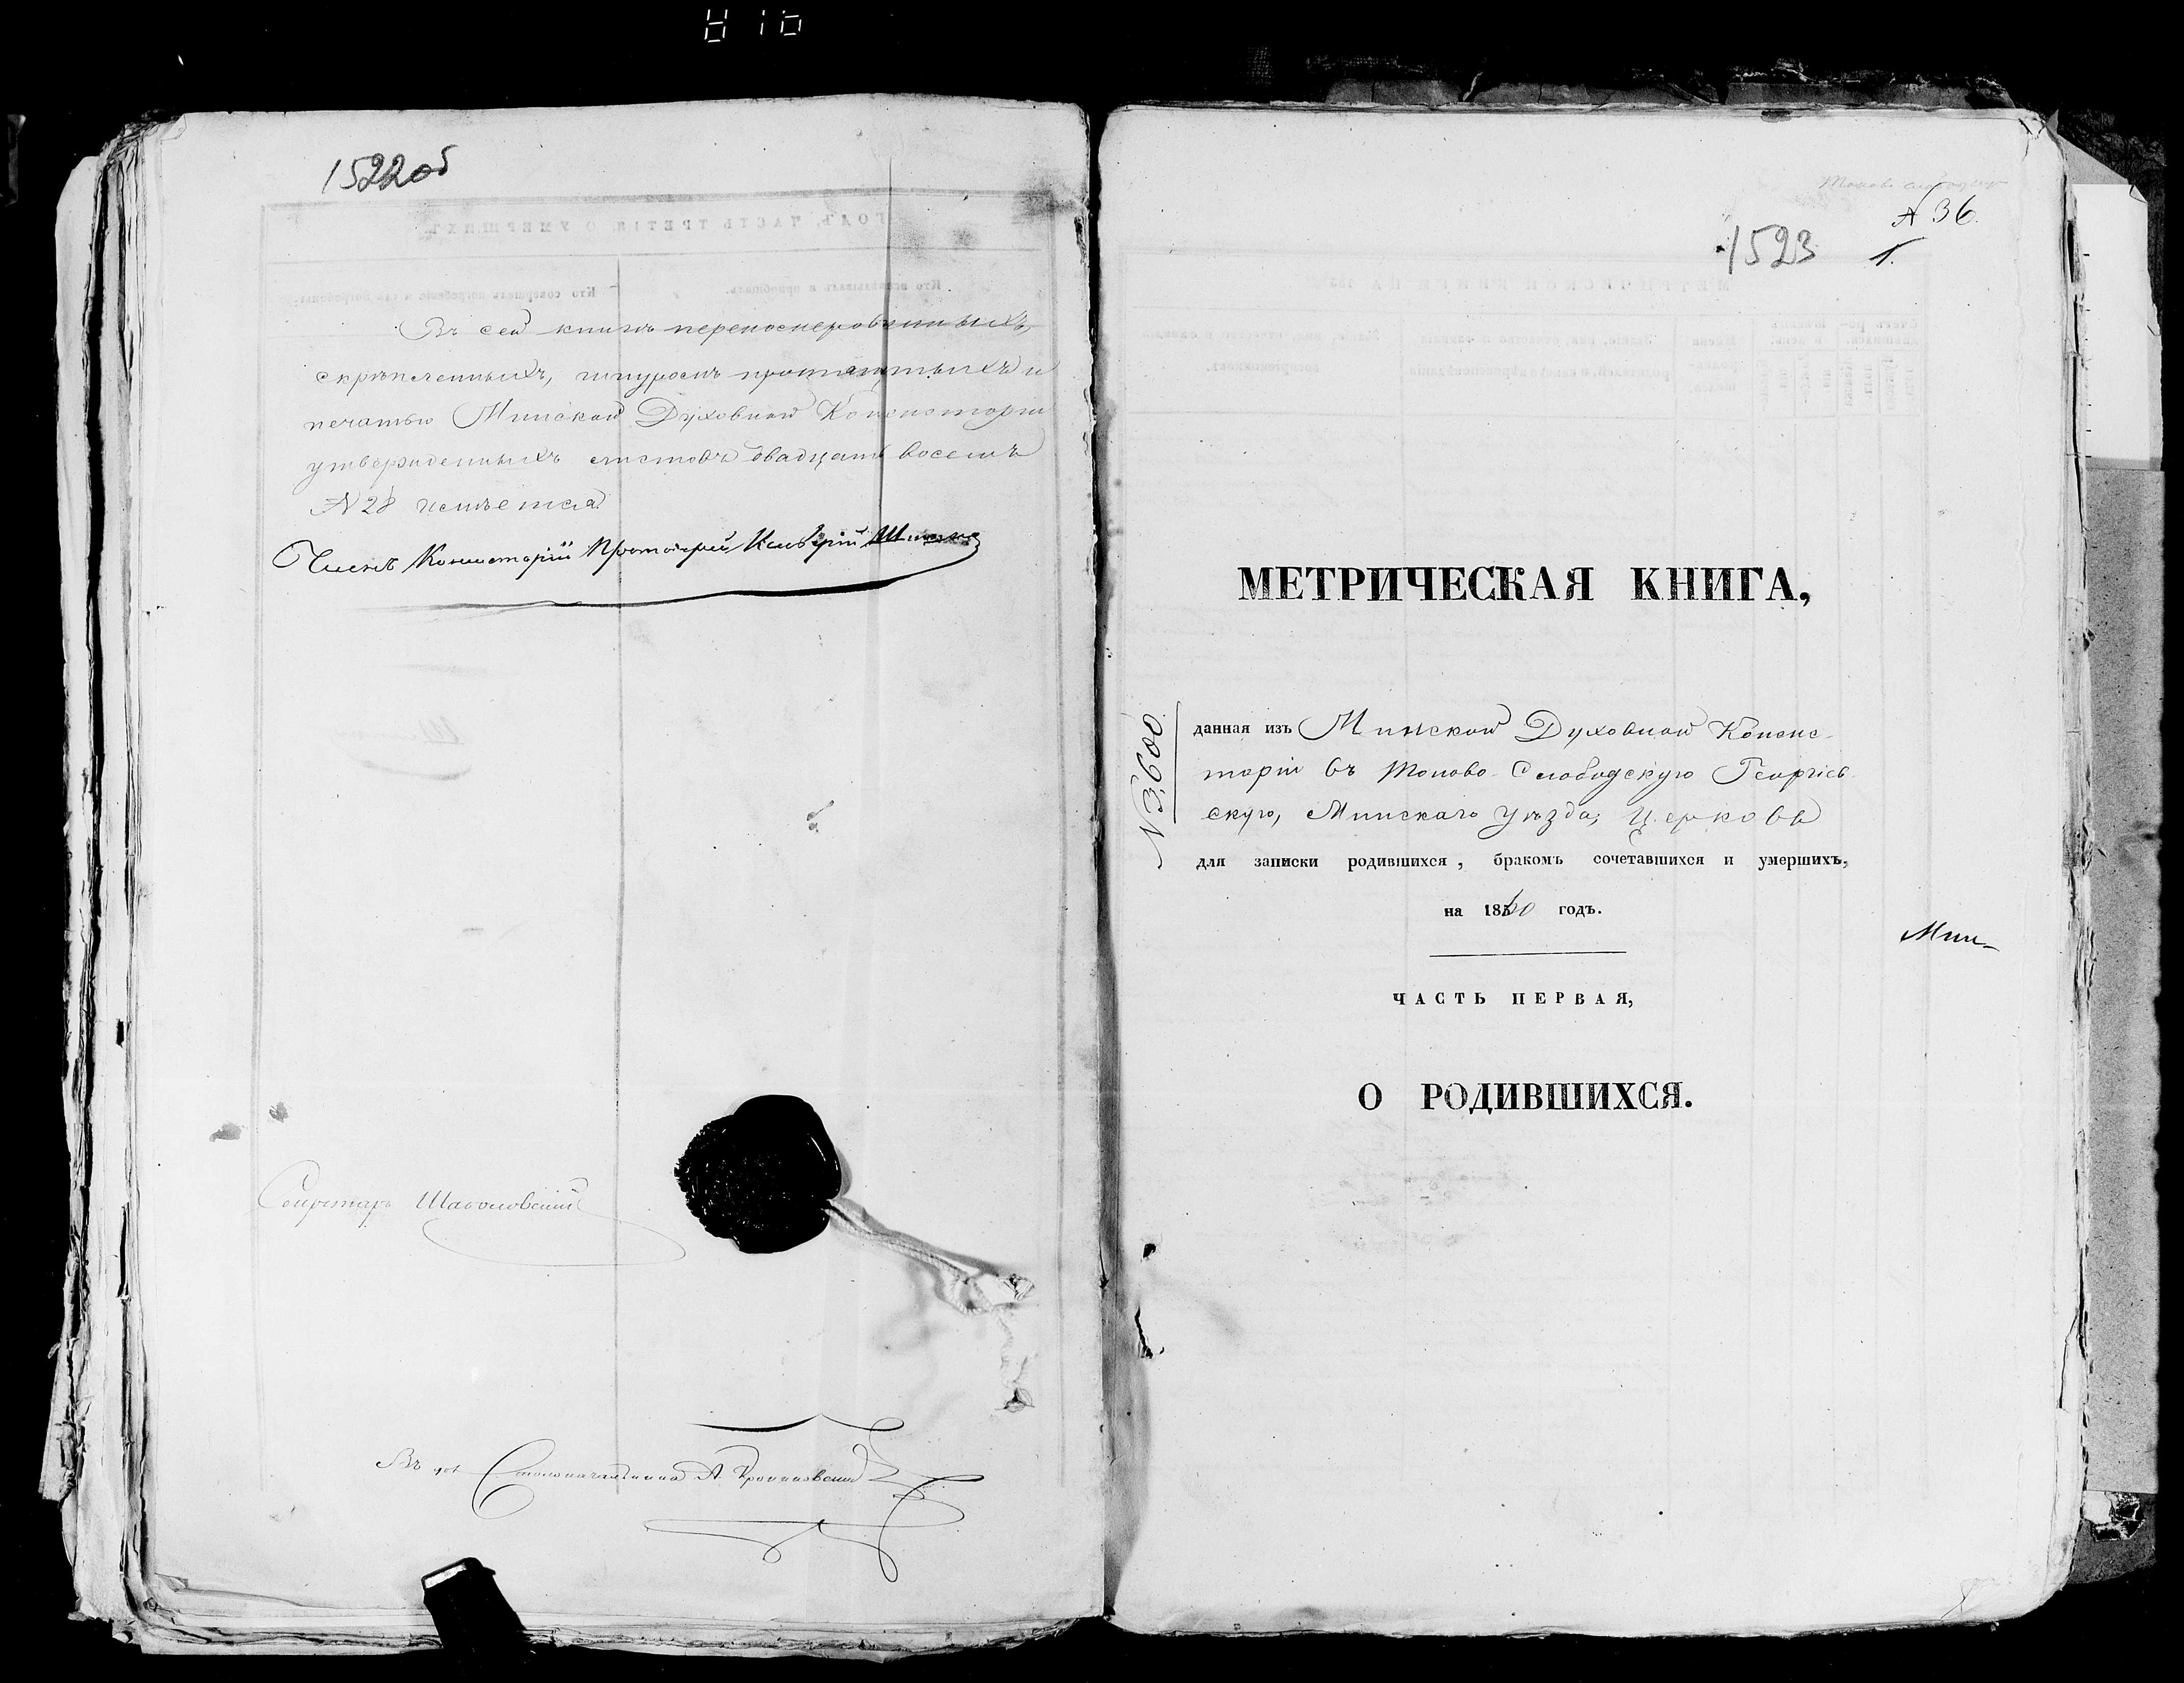 1522об
Въ сей книгѣ перенумерованныхъ,
скрѣпленныхъ, шнуромъ протянутыхъ и
печатью Минской Духовной Консисторіи
утвержденныхъ листовъ двадцать восемь
№ 28 имѣется.
Членъ Консисторіи Протоіерей
Секретарь
Въ Столоначальника А.
№ 36.
1523
1.
МЕТРИЧЕСКАЯ КНИГА,
№ 3,600
данная изъ Минской Духовной Консис-
торіи въ Тоново-Слободскую Георгіев-
скую, Минскаго уѣзда, Церковь
для записки родившихся, бракомъ сочетавшихся и умершихъ,
на 1860 годъ.
Мин-
ЧАСТЬ ПЕРВАЯ,
О РОДИВШИХСЯ.